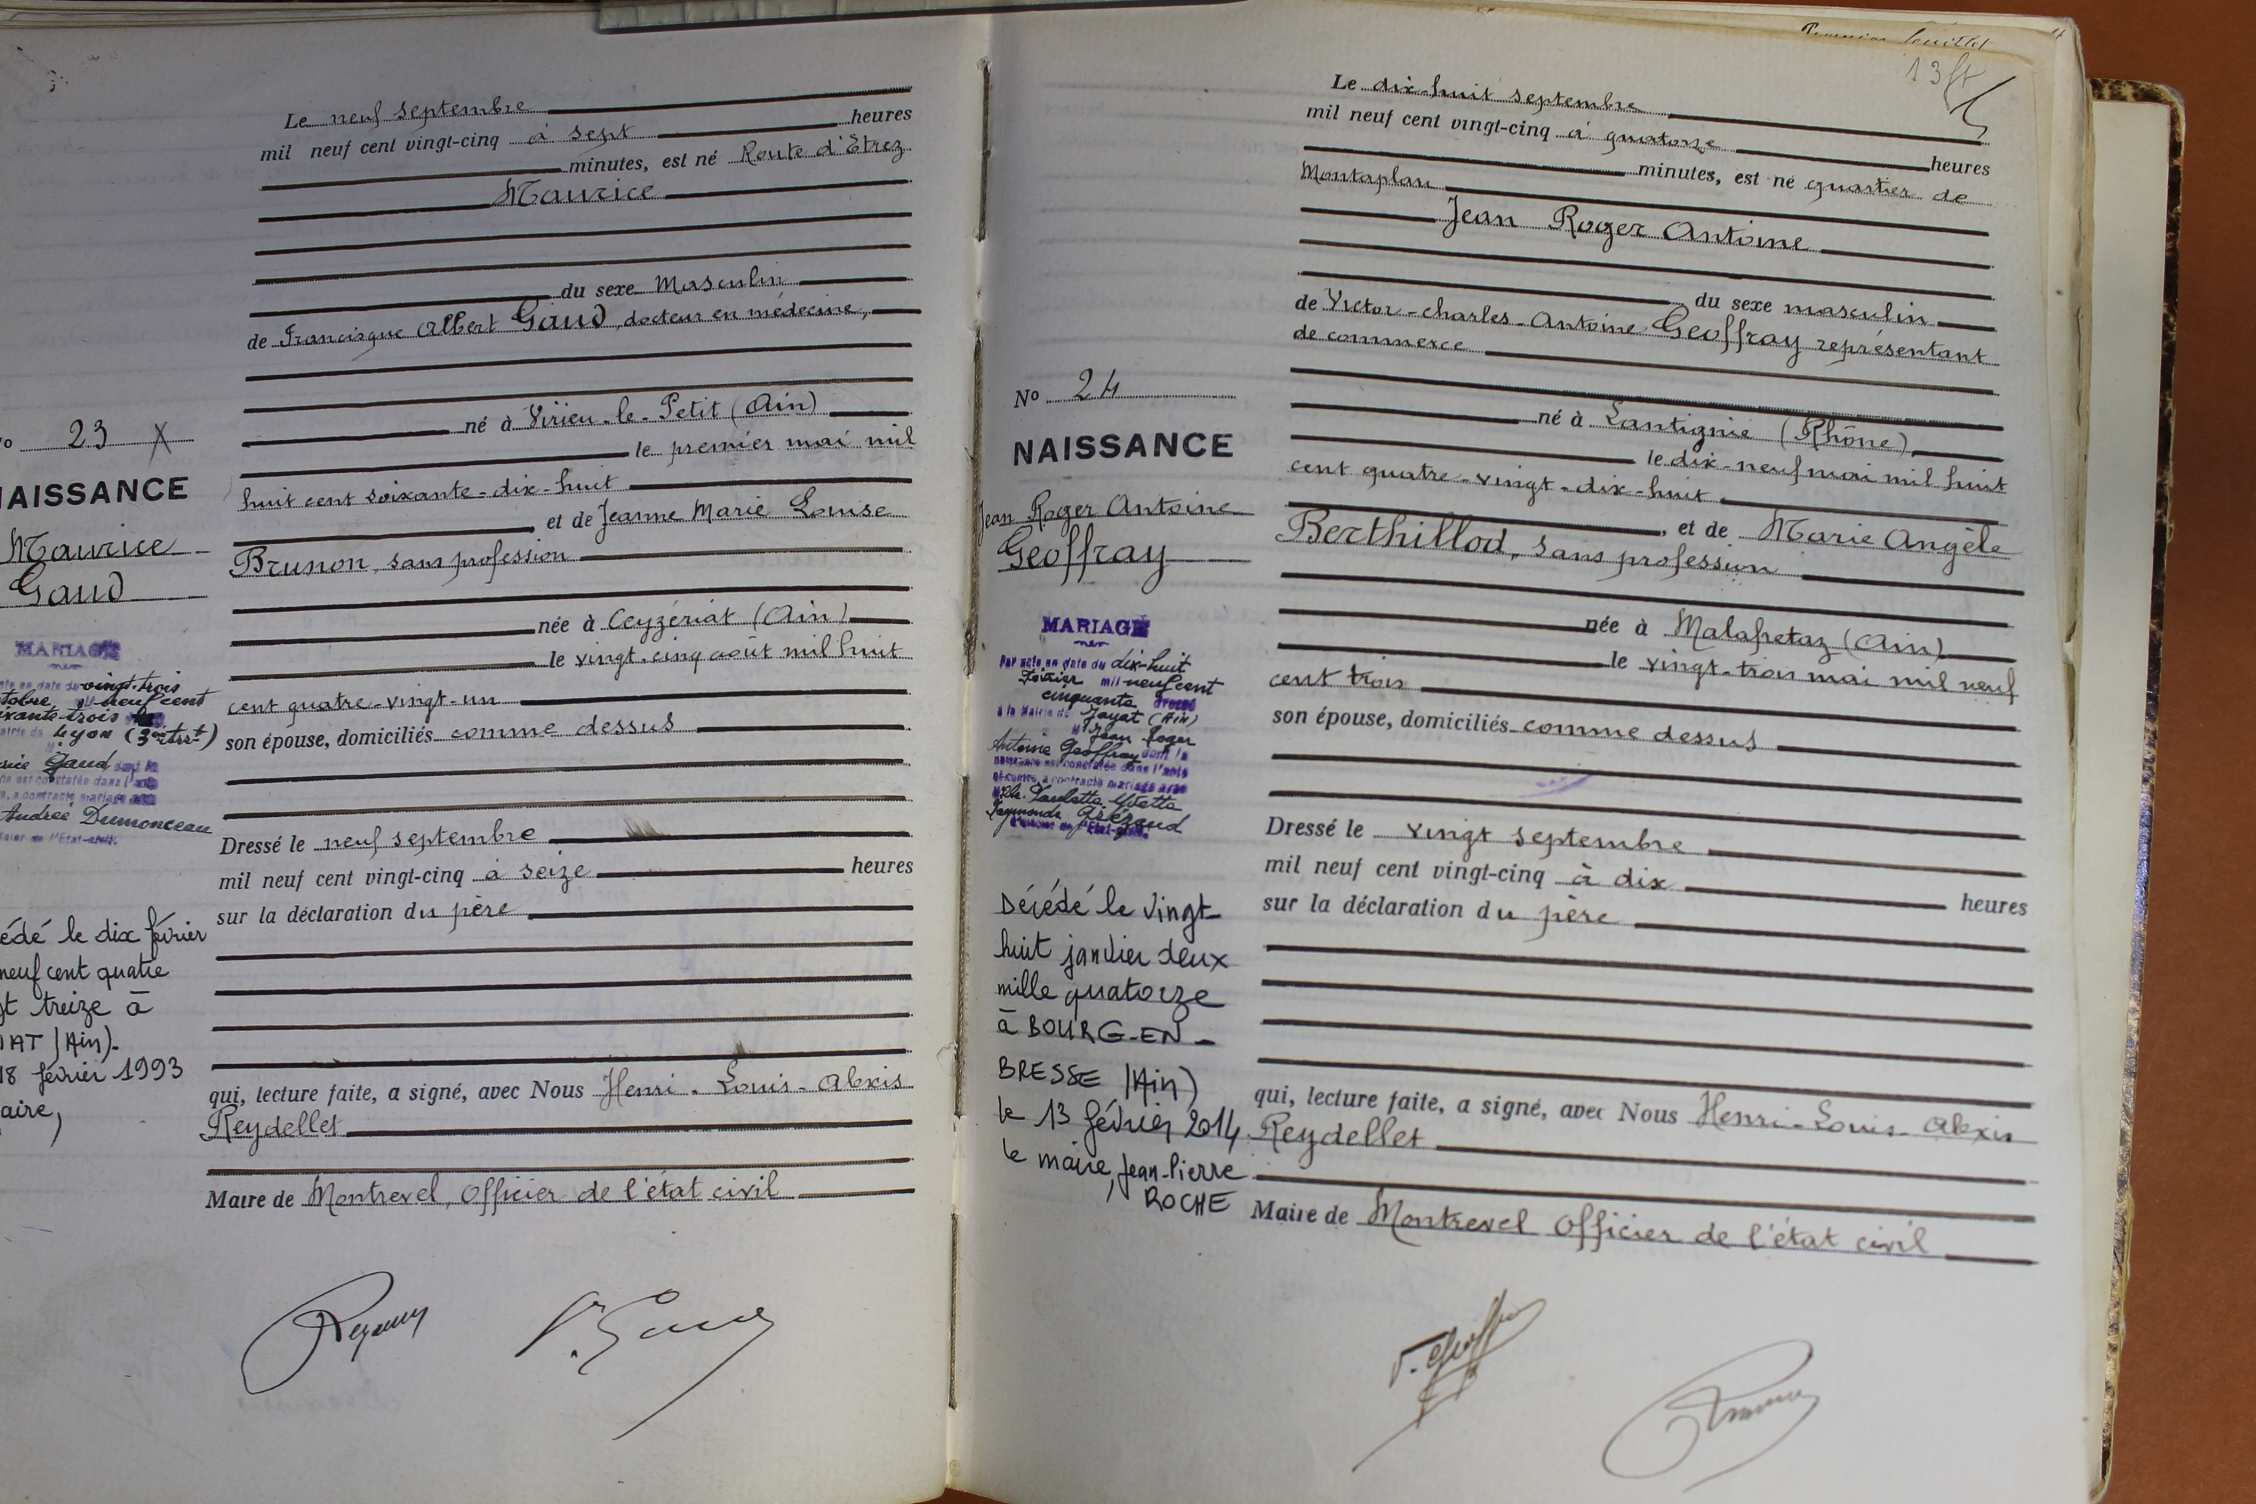 Le neuf septembre
mil neuf cent vingt-cinq à sept heures
minutes, est né Route d'Etrez
Maurice
du sexe Masculin
de Francisque Albert Gaud, docteur en médecine,
né à Virieu-le-Petit (Ain)
le premier mai mil
huit cent soixante-dix-huit
et de Jeanne Marie Louise
Brunon, sans profession
née à Ceyzériat (Ain)
le vingt-cinq août mil huit
cent quatre-vingt-un
son épouse, domiciliés comme dessus
Dressé le neuf septembre
mil neuf cent vingt-cinq à seize heures
sur la déclaration du père
qui, lecture faite, a signé, avec Nous Henri-Louis-Alexis
Reydellet
Maire de Montrevel, Officier de l'état civil
23 X
NAISSANCE
Maurice
Gaud
MARIAGE
vingt-trois
neuf cent
trois
Lyon (3e
Gaud
Andrée Dumonceau
le dix février
neuf cent quatre
treize à
(Ain)-
18 février 1993
13
Le dix-huit septembre
mil neuf cent vingt-cinq à quatorze heures
minutes, est né quartier de
Montaplan
Jean Roger Antoine
du sexe masculin
de Victor-Charles-Antoine Geoffray représentant
de commerce
né à Lantignie (Rhône)
le dix-neuf mai mil huit
cent quatre-vingt-dix-huit
, et de Marie Angèle
Berthillod, sans profession
née à Malafretaz (Ain)
le vingt-trois mai mil neuf
cent trois
son épouse, domiciliés comme dessus
Dressé le vingt septembre
mil neuf cent vingt-cinq à dix heures
sur la déclaration du père
qui, lecture faite, a signé, avec Nous Henri-Louis-Alexis
Reydellet
Maire de Montrevel Officier de l'état civil
No 24
NAISSANCE
Jean Roger Antoine
Geoffray
MARIAGE
Par acte en date du dix-huit
Février mil neuf cent
cinquante dressé
à la Mairie de Jayat (Ain)
Jean Roger
Antoine Geoffray dont la
naissance est constatée dans l'acte
ci-contre, a contracté mariage avec
Paulette Yvette
Raymonde
l'Officier de l'Etat-civil.
Décédé le vingt-
huit janvier deux
mille quatorze
à BOURG-EN-
BRESSE (Ain)
le 13 février 2014
le maire, Jean-Pierre
ROCHE